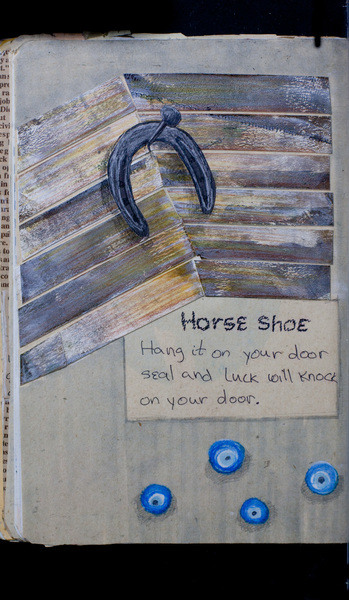 Horse Shoe
Hang it on your door
seal and Luck will Knock
on your door.